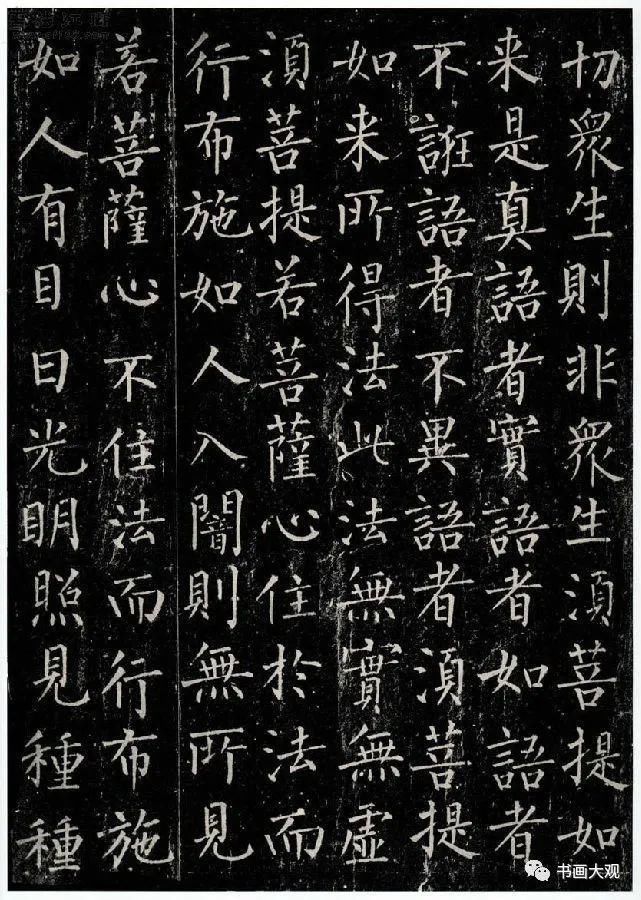 切衆生則非衆生須菩提如
来是真語者實語者如語者
不誑語者不異語者須菩提
如来所得法此法無實無虛
須菩提若菩薩心住於法而
行布施如人入闇則無所見
若菩薩心不住法而行布施
如人有目日光明照見種種
书画大观